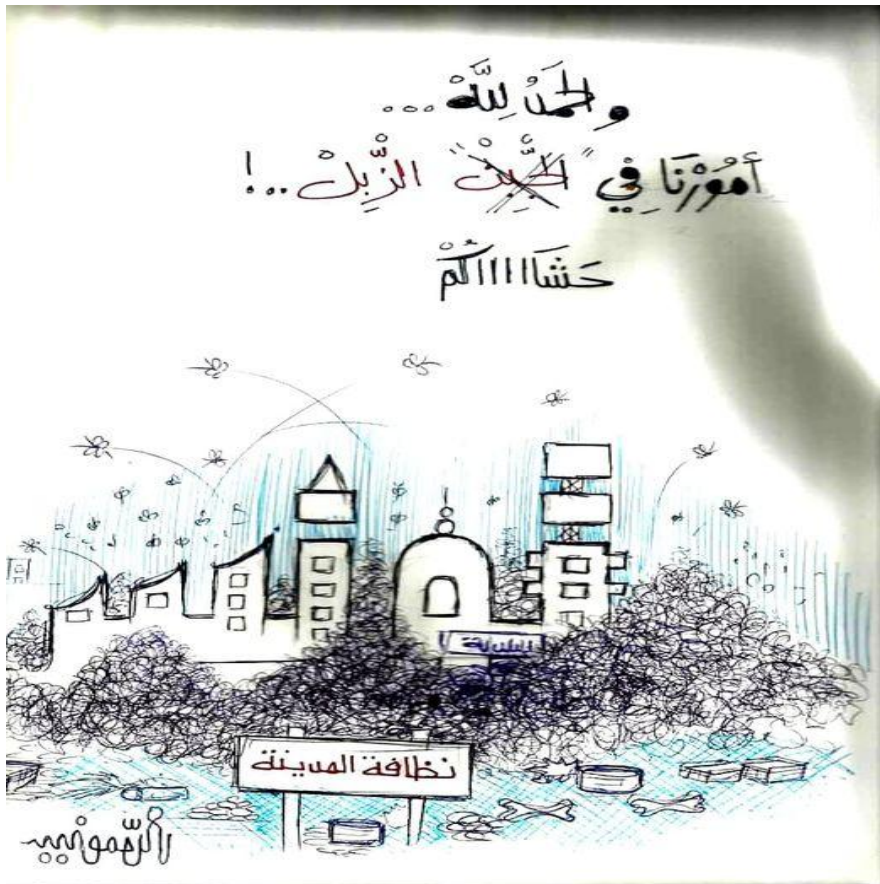 والحَمْدُ لِلَّهْ...
أمُوْرْنَا فِي "الجِّبِنْ" الزِّبِلْ ..!
حَشَاااااكُمْ
البلدية
نظافة المدينة